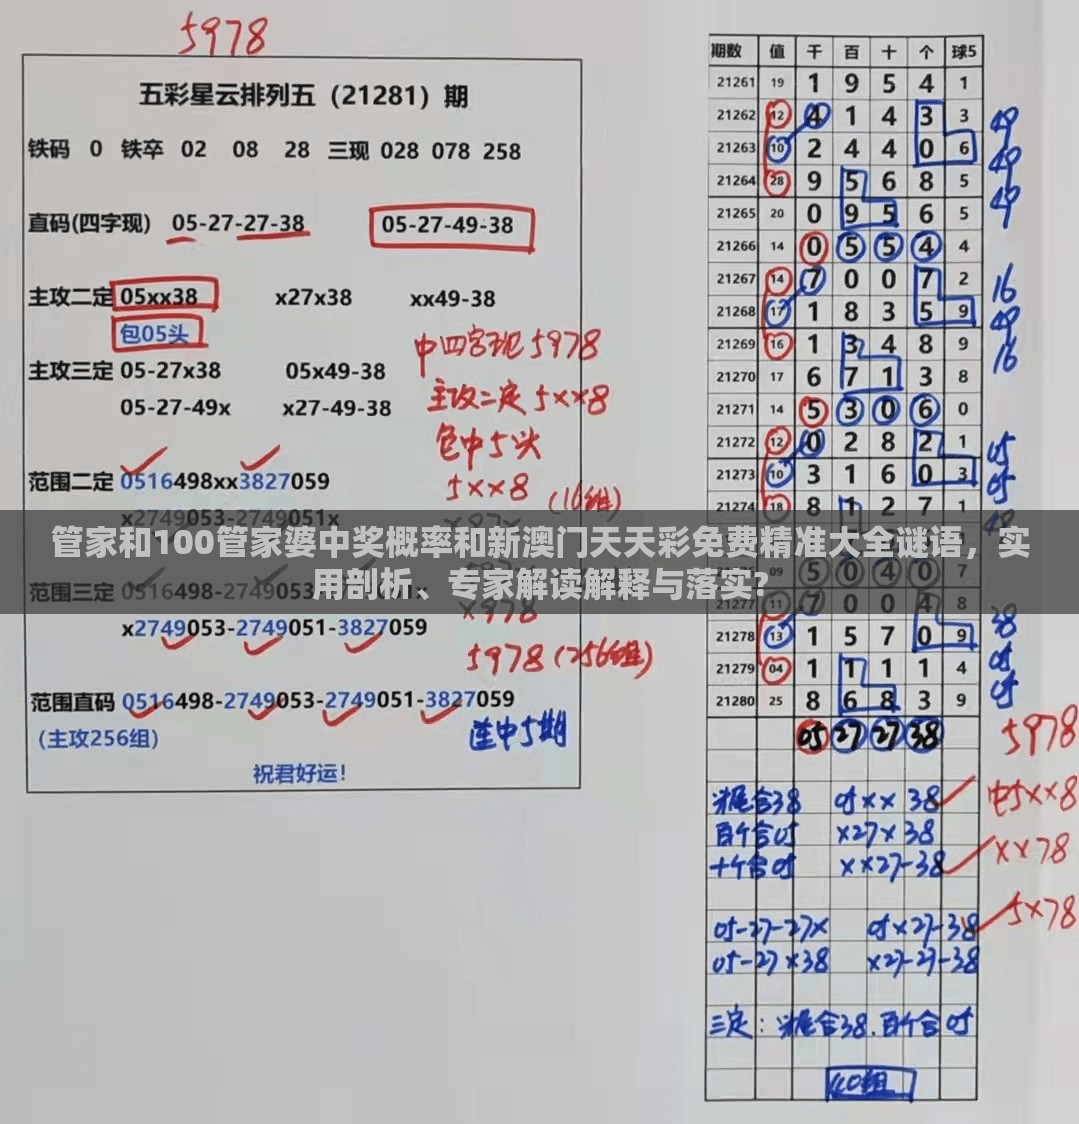 5978
五彩星云排列五（21281）期
铁码 0 铁卒 02 08 28 三现 028 078 258
直码(四字现) 05-27-27-38 05-27-49-38
主攻二定 05xx38 x27x38 xx49-38
包05头
中四字现5978
主攻三定 05-27x38 05x49-38
主攻二定5xx8
05-27-49x x27-49-38
包中5头
范围二定 0516498xx3827059
5xx8 (16组)
x2749053-2749051x
管家和100管家婆中奖概率和新澳门天天彩免费精准大全谜语，实
用剖析、专家解读解释与落实?
范围三定 0516498
x978
x2749053-2749051-3827059
5978 (256组)
范围直码 0516498-2749053-2749051-3827059
(主攻256组)
连中5期
祝君好运!
期数 值 千 百 十 个 球5
21261 19 1 9 5 4 1
21262 12 4 1 4 3 3 49
21263 10 2 4 4 0 6 49
21264 28 9 5 6 8 5 49
21265 20 0 9 5 6 5
21266 14 0 5 5 4 4
21267 14 7 0 0 7 2 16
21268 17 1 8 3 5 9 49
21269 16 1 3 4 8 9 16
21270 17 6 7 1 3 8
21271 14 5 3 0 6 0
21272 12 0 2 8 2 1 05
21273 10 3 1 6 0 3 05
21274 18 8 1 2 7 1
09 5 0 4 0 7
21277 11 7 0 0 4 8 38
21278 13 1 5 7 0 9 05
21279 04 1 1 1 1 4 05
21280 25 8 6 8 3 9
05 27 27 38 5978
合38 05xx38 中5xx8
百个合05 x27x38 xx78
十个合05 xx27-38
05-27-27x 05x27-38 5x78
05-27x38 x27-27-38
三定: 合38.百个合05
40组